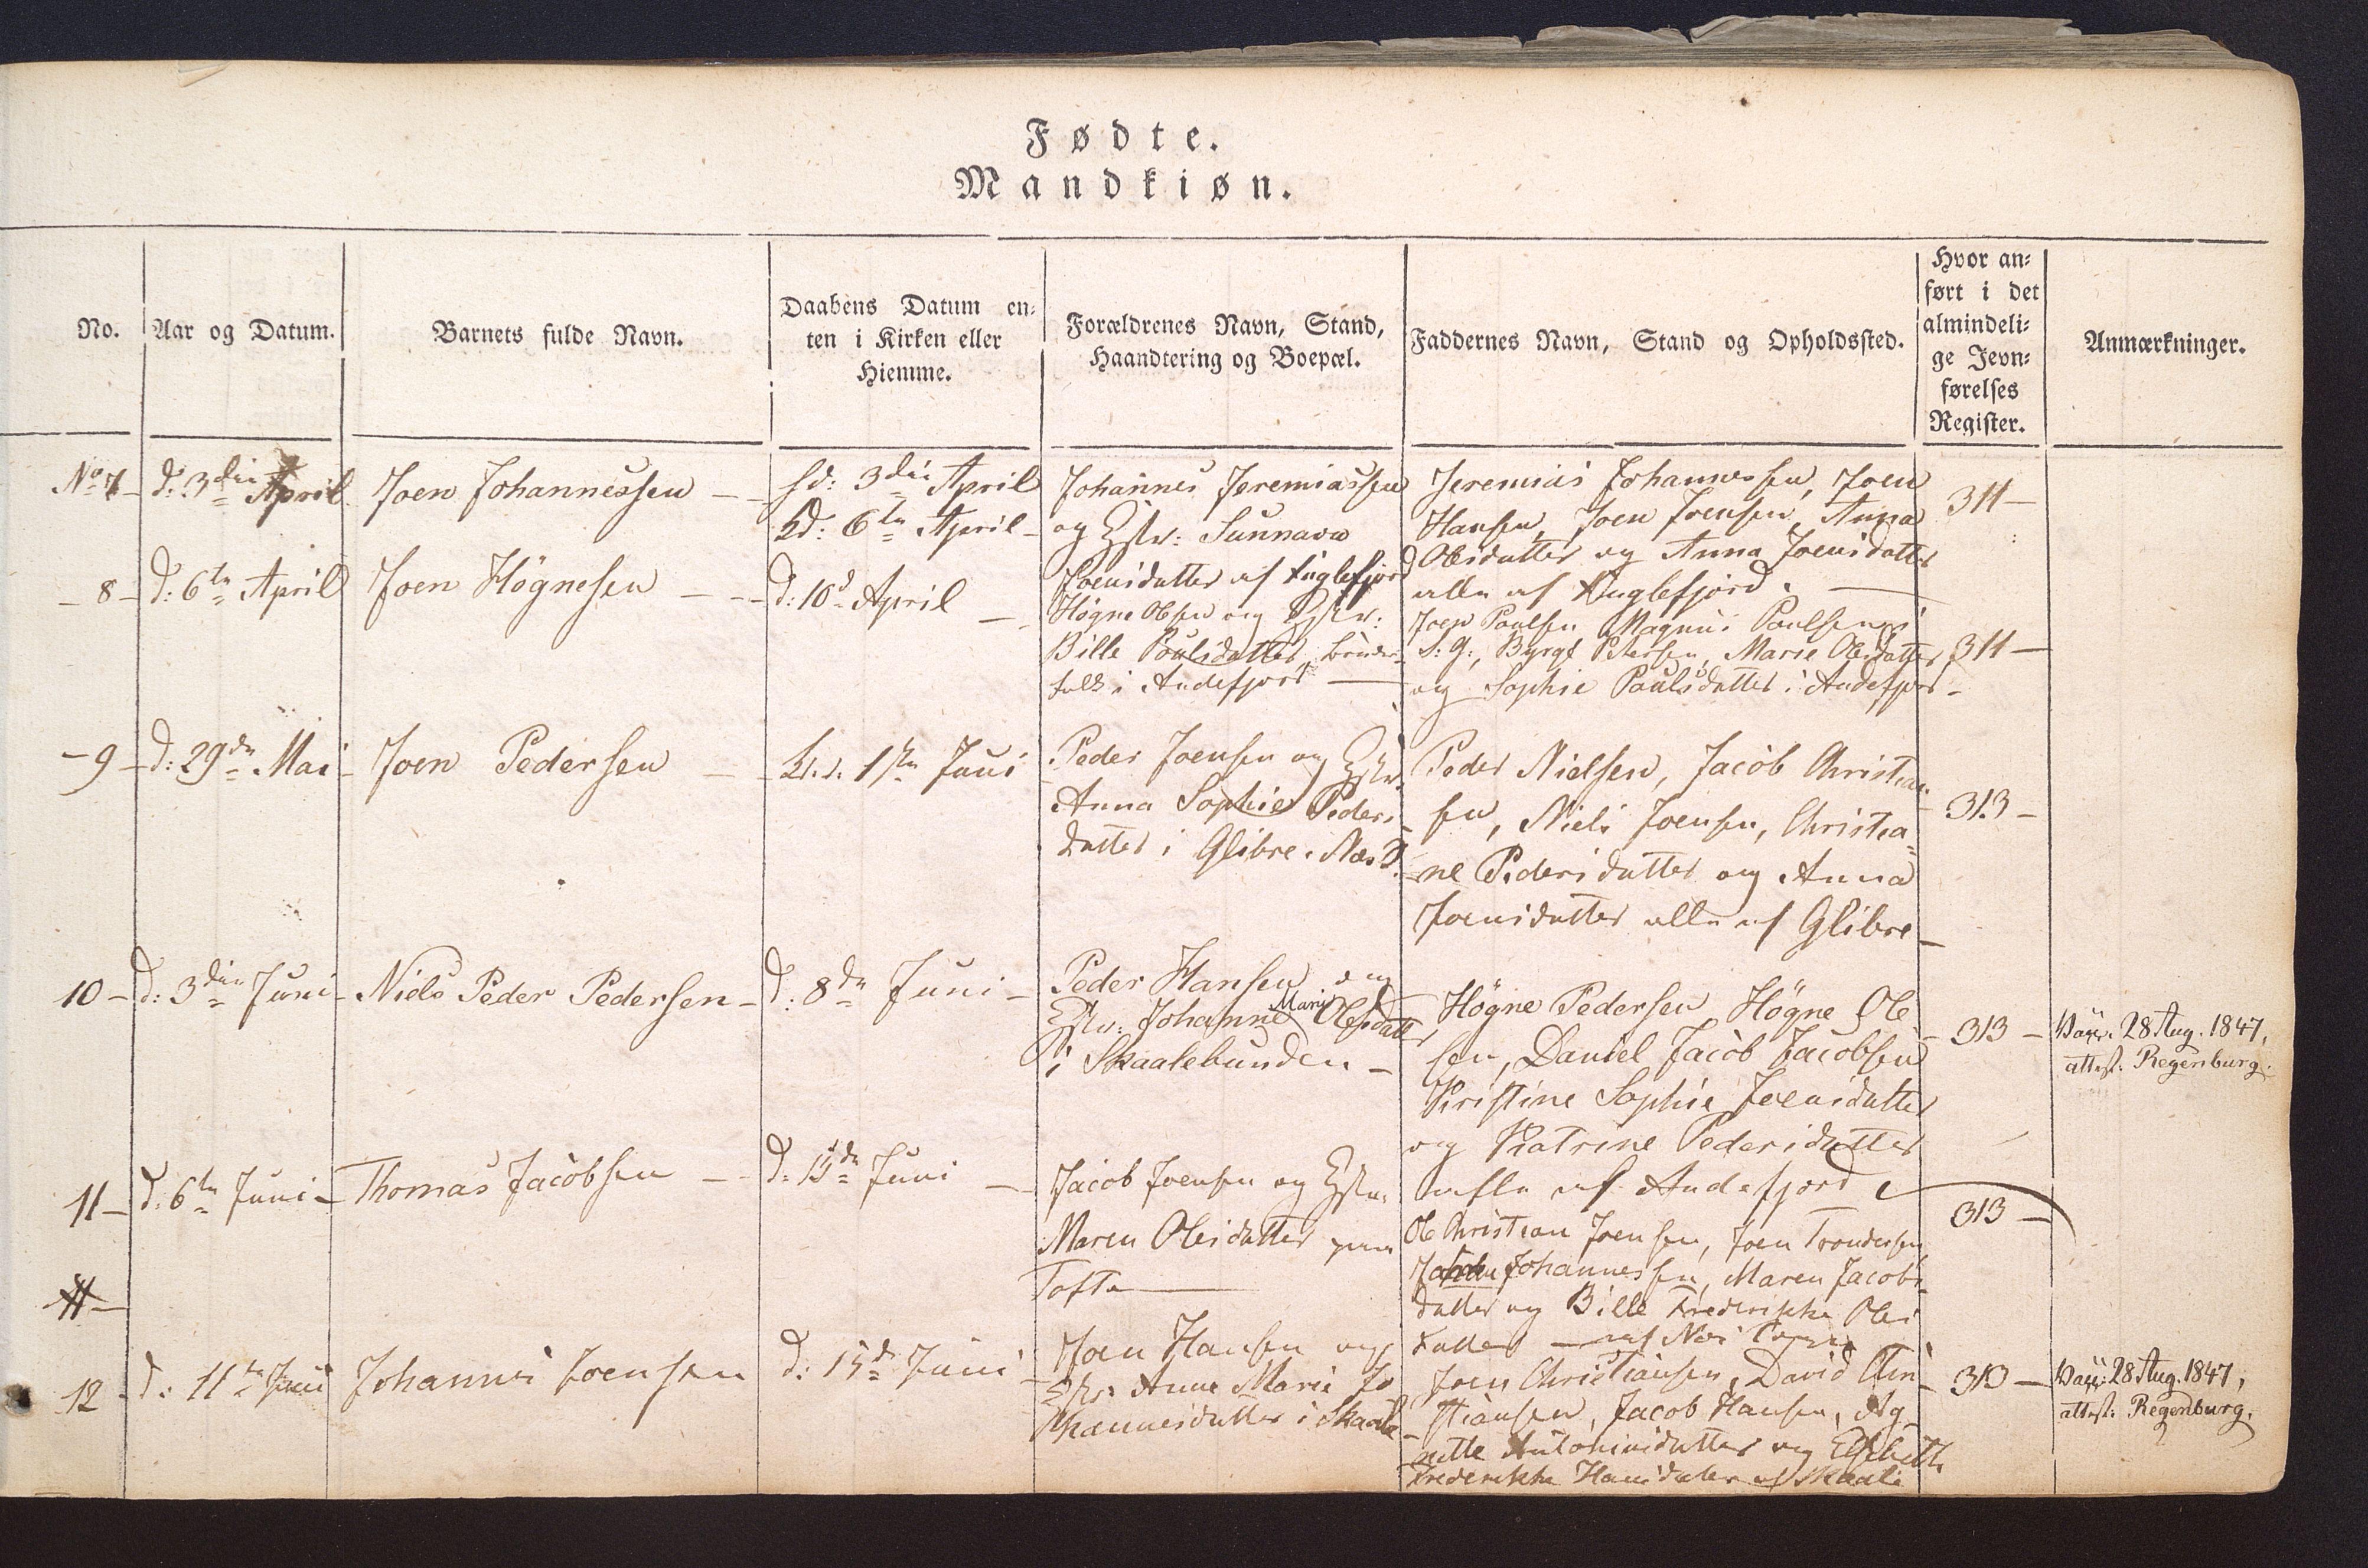 Fødte.
Mandkiøn.
No.
Aar og Datum.
Barnets fulde Navn.
Daabens Datum en-
ten i Kirken eller
Hiemme.
Forældrenes Navn, Stand,
Haandtering og Boepæl.
Faddernes Navn, Stand og Opholdssted.
Hvor an-
ført i det
almindeli-
ge Jevn-
førelses
Register.
Anmærkninger.
No 7 - d: 3die April
Joen Johannessen
hd: 3die April
kd: 6te April
Johannes Jeremiassen
og Hstr: Sunnava
Joensdatter af Fuglefjord
Jeremias Johannessen, Joen
Hansen, Joen Joensen, Anna
Olesdatter og Anna Joensdatter
alle af Fuglefjord.
311 -
- 8 - d: 6te April
Joen Högnesen
d: 10d April
Högne Olsen og Hstr:
Bille Poulsdatter, bönder-
folk i Andefjord
Joen Poulsen Magnus Poulsen
S: G:, Byrge Petersen, Marie Olesdatter
og Sophie Poulsdatter i Andefjord -
311 -
- 9 - d: 29de Mai
Joen Pedersen
kd. 1ste Juni
Peder Joensen og Hstr.
Anna Sophie Peders-
datter i Glibre. Næs S.
Peder Nielsen, Jacob Christian-
sen, Niels Joensen, Christia-
ne Pedersdatter og Anna
Joensdatter alle af Glibre -
313 -
10 - d: 3die Juni
Niels Peder Pedersen -
d: 8de Juni -
Peder Hansen og
Hstr: Johanne Marie Olesdatter
i Skaalebunden -
Högne Pedersen, Högne Ole
sen, Daniel Jacob Jacobsen
Kristine Sophie Joensdatter
og Katrine Pedersdatter
alle af Andefjord
313 -
Vacc. 28 Aug. 1847,
attest. Regenburg.
11 - d: 6te Juni -
Thomas Jacobsen
d: 15de Juni
Jacob Joensen og Hstr.
Maren Olesdatter paa
Tofte
Ole Christian Joensen, Joen Trondesen
Johannessen, Maren Jacobs-
datter og Bille Frederikke Oles
datter af Næs
313 -
11 -
12 - d: 11te Juni
Johannes Joensen
d: 15d Juni
Joen Hansen og
Hstr: Anne Marie Jo
hannesdatter i Skaale
Joen Christiansen, David Chri
stiansen, Jacob Hansen, Ag-
nette Antoniusdatter og Elsebeth
Frederikke Hansdatter af Skaale
313 -
Vacc: 28 Aug. 1847,
attest: Regenburg.